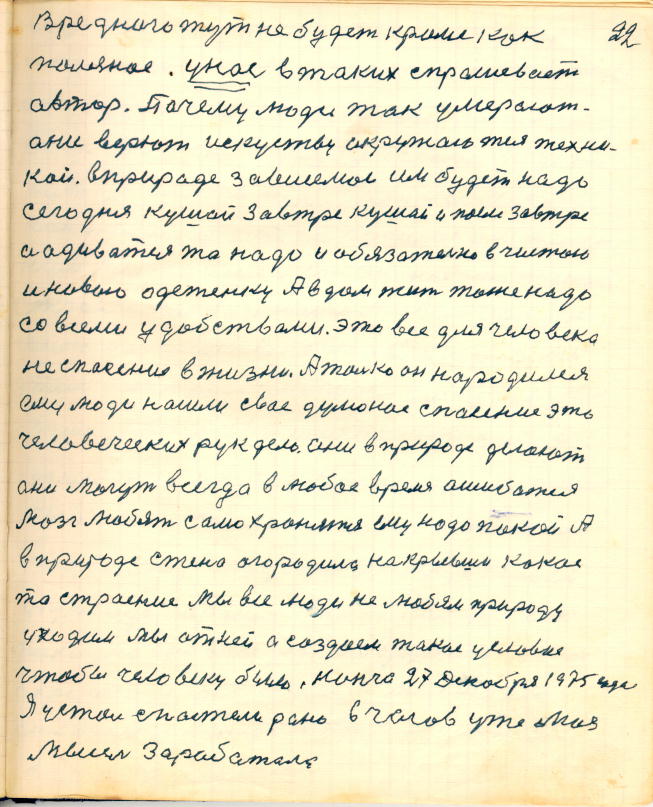 22
Вредного тут не будет кроме как
полезное. унас в таких спрашевает
автор. Почему люди так умерают.
ани верют искуству окружаютея техни-
кой. в природе зависемое им будет надо
сегодня кушай завтре кушай и после завтре
а адиватея та надо и обязателно в чистою
и новою одеженку А в дом жит тоже надо
со всеми удобствами. Это все для человека
не спасение в жизни. А толко он народился
ему люди нашли свае думоное спасение это
человеческих рук дело. ани в природе делают
ани могут всегда в любое время ашибатея
мозг любят само хранятея ему надо покой А
в природе стена огородила накрывши какое
та страение Мы все люди не любим природу
уходим мы от ней а создаем такое условие
чтобы человеку было. нонча 27 Декабря 1975 года
Я устал с пастели рано 6 часов уже моя
мысел Заработала